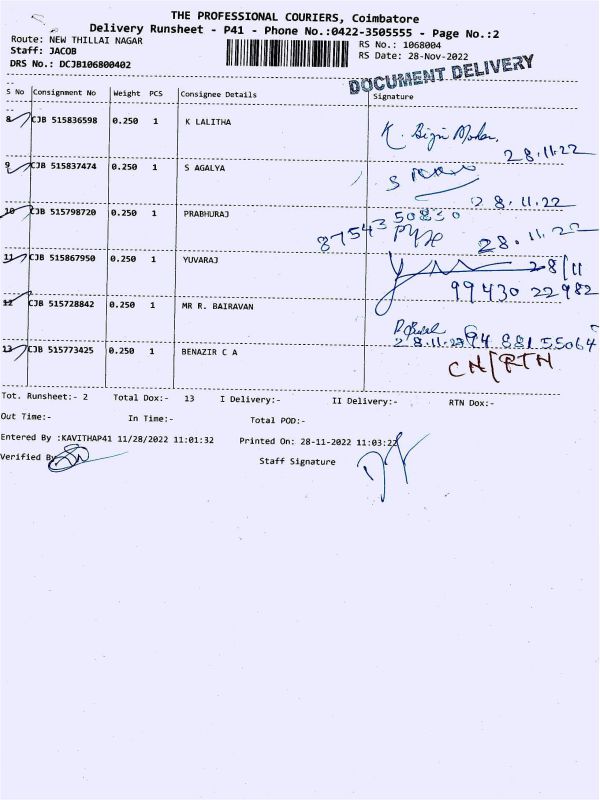 THE PROFESSIONAL COURIERS, Coimbatore
Delivery Runsheet - P41 - Phone No.:0422-3505555 - Page No.:2
Route: NEW THILLAI NAGAR RS No.: 1068004
Staff: JACOB RS Date: 28-Nov-2022
DRS No.: DCJB106800402
DOCUMENT DELIVERY
S No Consignment No Weight PCS Consignee Details Signature
8 CJB 515836598 0.250 1 K LALITHA K.
28.11.22
9 CJB 515837474 0.250 1 S AGALYA S
28.11.22
10 CJB 515798720 0.250 1 PRABHURAJ
28.11.22
11 CJB 515867950 0.250 1 YUVARAJ 28/11
99430 22982
12 CJB 515728842 0.250 1 MR R. BAIRAVAN
28.11.22
13 CJB 515773425 0.250 1 BENAZIR C A CN/RTN
Tot. Runsheet:- 2 Total Dox:- 13 I Delivery:- II Delivery:- RTN Dox:-
Out Time:- In Time:- Total POD:-
Entered By :KAVITHAP41 11/28/2022 11:01:32 Printed On: 28-11-2022 11:03:22
Verified By Staff Signature